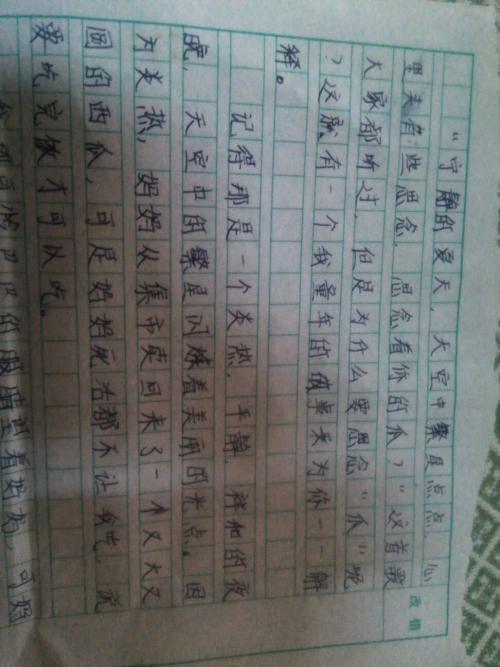 改错
"宁静的夏天,天空中繁星点点,心
里头有些思念,思念着你的爪?"这首歌
大家都听过,但是为什么要思念"爪"呢
?这就有一个我童年的故事来为你一一解
释。
记得那是一个炎热,平静,祥和的夜
晚,天空中的繁星闪烁着美丽的光点。因
为炎热,妈妈从集市卖回来了一个又大又
圆的西瓜,可是妈妈死活都不让我吃,说
要吃完饭才可以吃。
的眼睛望着妈妈,可妈